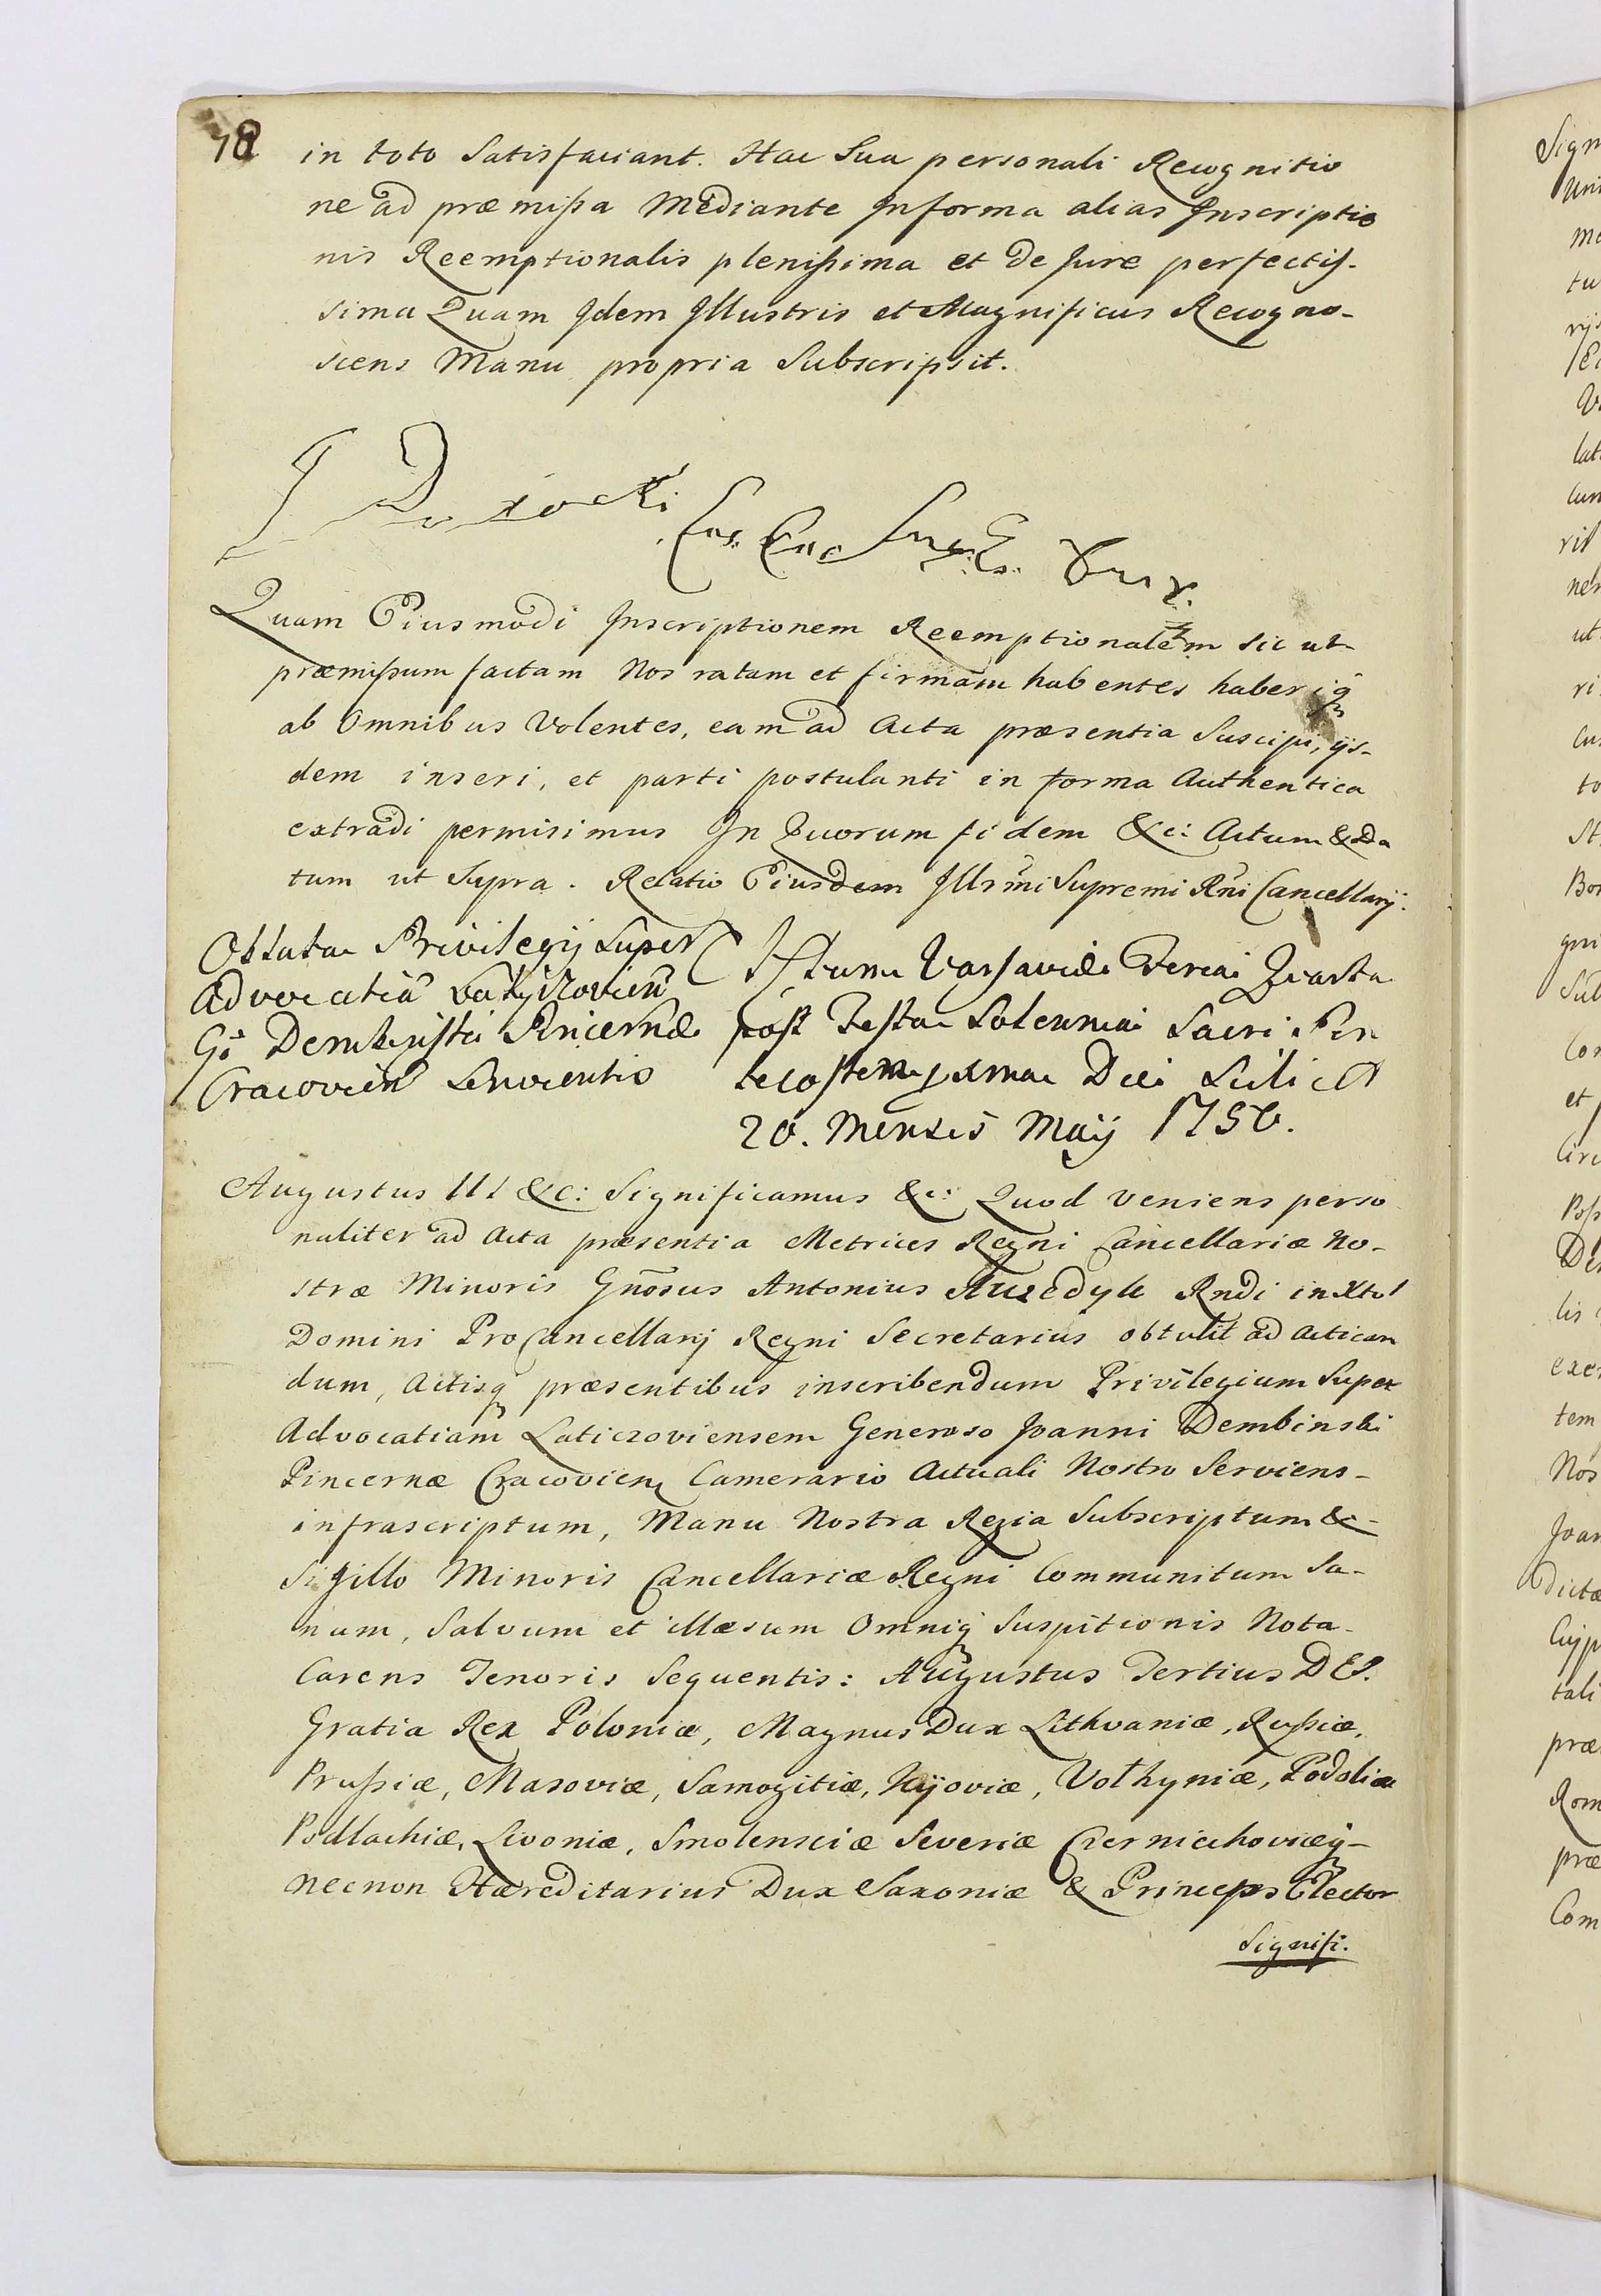 78
in toto Satisfaciant. Hac Sua personali Recognitio
ne ad præmissa Mediante Informa alias Inscriptio
nis Reemptionalis plenissima et de Jure perfectis-
sima Quam Idem Illustris et Magnificus Recogno-
scens Manu propria Subscripsit.
Quam Eiusmodi Inscriptionem Reemptionalem sic ut
præmissum factam Nos ratam et firmam habentes haberiq̃
ab Omnibus Volentes, eam ad Acta præsentia Suscipi, ijs-
dem inseri, et parti postulanti in forma Authentica
extradi permisimus In Quorum fidem &c: Actum & Da
tum ut Supra. Relatio Eiusdem Illrm̃i Supremi Rñi Cancellarij.
Oblata Privilegij Super
Advocatiã
Gõ Dembinski Pincernæ
Cracovien̄ Servientis
Actum Varsaviæ Feria Quarta
post Festa Solennia Sacri Pen
tecostes proxima Die Scilicet
20. Mensis Maij 1750.
Augustus III &c: Significamus &c: Quod Veniens perso
naliter ad Acta præsentia Metrices Regni Cancellariæ No-
stræ Minoris Gnõsus Antonius Rndi in Xto
Domini ProCancellarij Regni Secretarius obtulit ad Actican
dum, Actisq̃ præsentibus inscribendum Privilegium Super
Advocatiam Laticzoviensem Generoso Joanni Dembinski
Pincernæ Cracovien Camerario Actuali Nostro Serviens-
infrascriptum, Manu Nostra Regia Subscriptum &-
Sigillo Minoris Cancellariæ Regni Communitum Sa-
num, Salvum et illæsum Omniq̃ Suspitionis Nota-
Carens Tenoris Sequentis: Augustus Tertius DEI.
Gratia Rex Poloniæ, Magnus Dux Lithvaniæ, Russiæ,
Prussiæ, Masoviæ, Samogitiæ, Kijoviæ, Volhyniæ, Podoliæ
Podlachiæ, Livoniæ, Smolensciæ Severiæ Czerniechoviæq̃-
necnon Hæreditarius Dux Saxoniæ & Princeps Elector
Signifi.